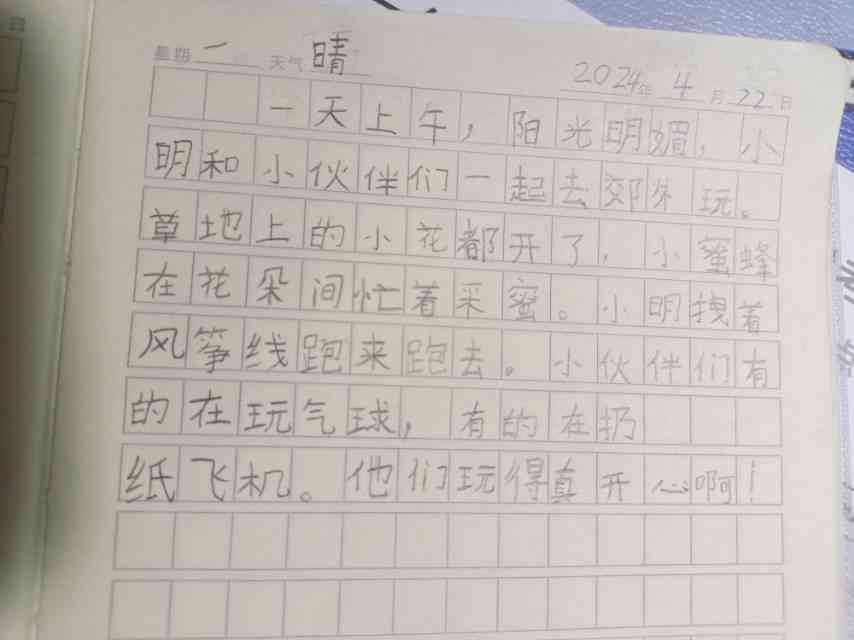 星期一 天气晴 2024年4月22日
一天上午，阳光明媚，小
明和小伙伴们一起去郊外玩。
草地上的小花都开了，小蜜蜂
在花朵间忙着采蜜。小明拽着
风筝线跑来跑去。小伙伴们有
的在玩气球，有的在扔
纸飞机。他们玩得真开心啊！